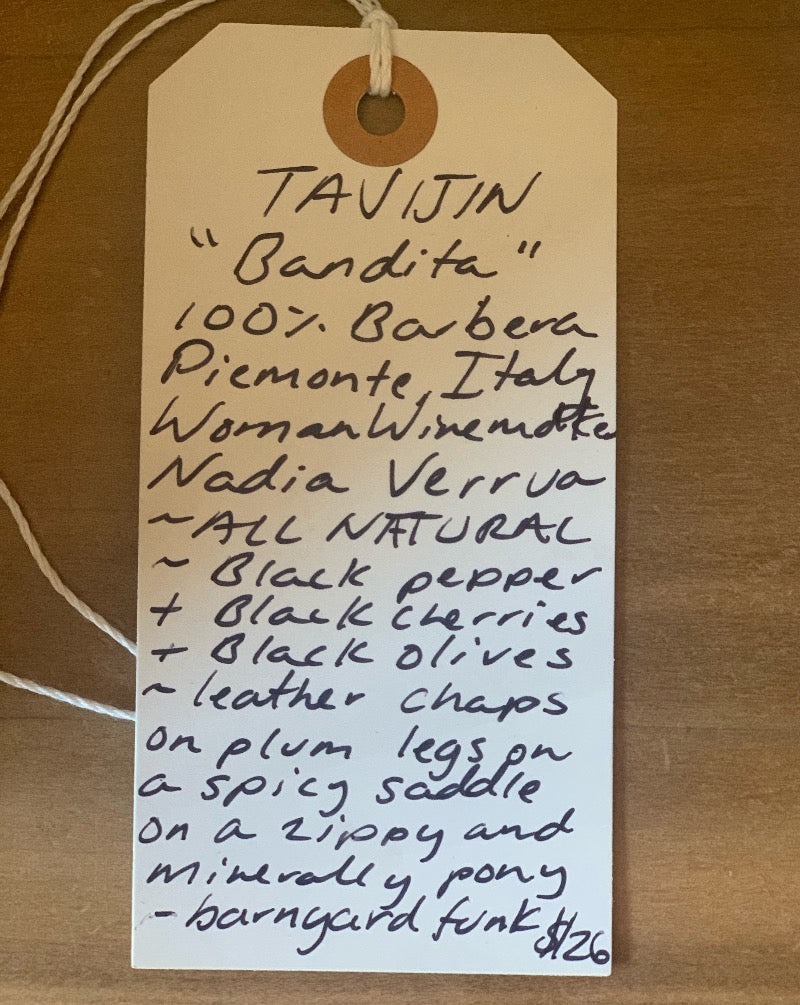 TAVIJIN
"Bandita"
100% Barbera
Piemonte, Italy
Woman Winemaker
Nadia Verrua
~ ALL NATURAL
~ Black pepper
+ Black cherries
+ Black olives
~ leather chaps
on plum legs on
a spicy saddle
on a zippy and
minerally pony
- barnyard funk
$126